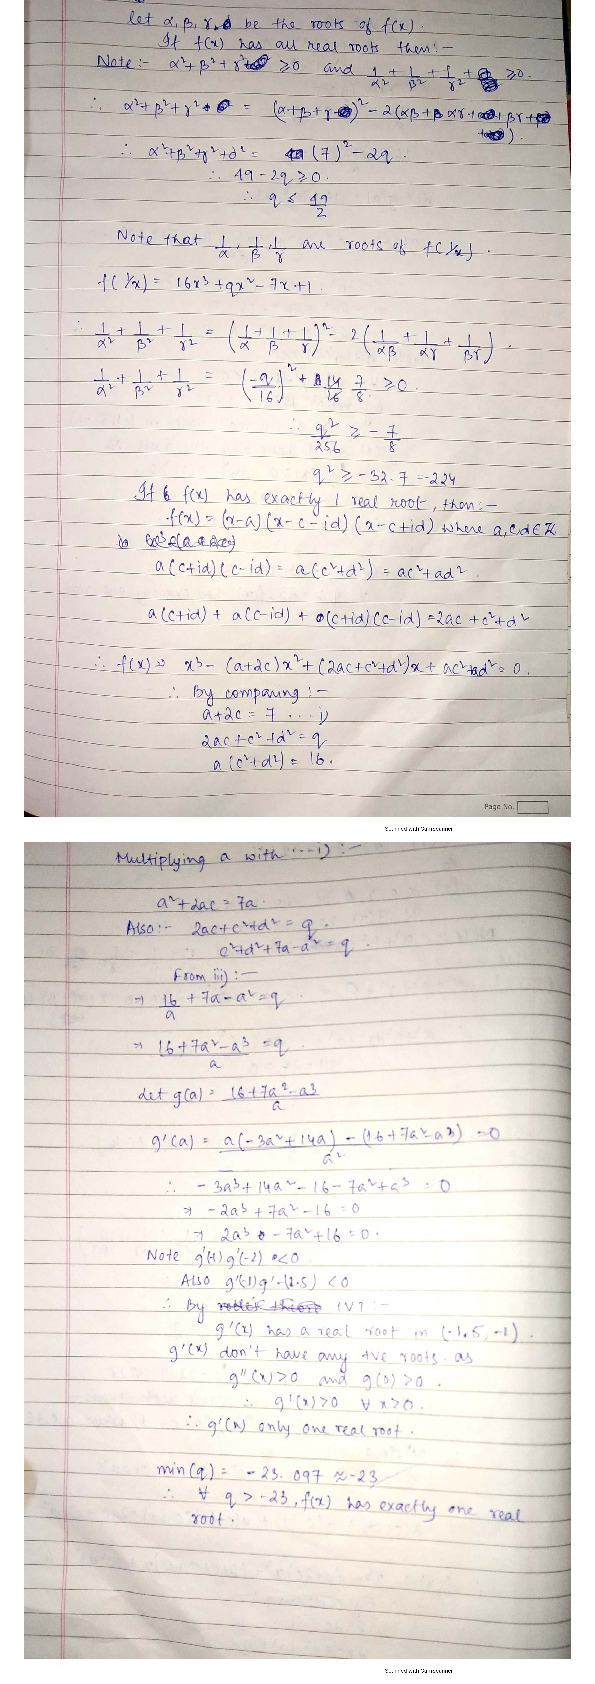 let α, β, γ, be the roots of f(x).
If f(x) has all real roots then:-
Note:- α²+β²+γ² ≥0 and 1/α² + 1/β² + 1/γ² + ≥0.
∴ α²+β²+γ² = (α+β+γ)² - 2(αβ+ αγ+ βγ+
).
∴ α²+β²+γ²+d² = (7)² - 2q.
∴ 49-2q ≥0.
∴ q ≤ 49/2
Note that 1/α, 1/β, 1/γ are roots of f(1/x).
f(1/x) = 16x³+qx²-7x+1.
∴ 1/α² + 1/β² + 1/γ² = (1/α + 1/β + 1/γ)² - 2(1/αβ + 1/αγ + 1/βγ).
1/α² + 1/β² + 1/γ² = (-q/16)² + 7/8 ≥0.
∴ q²/256 ≥ -7/8
q² ≥ -32.7 = -224
If f(x) has exactly 1 real root, then:-
f(x) = (x-a)(x-c-id)(x-c+id) where a,c,d∈
a(c+id)(c-id) = a(c²+d²) = ac²+ad²
a(c+id) + a(c-id) + (c+id)(c-id) = 2ac+c²+d²
∴ f(x) ⇒ x³-(a+2c)x²+(2ac+c²+d²)x+ac²+ad²=0.
∴ By comparing:-
a+2c = 7 ... i)
2ac+c²+d² = q
a(c²+d²) = 16.
Page No.
Scanned with CamScanner
Multiplying a with ...i):-
a²+2ac = 7a.
Also:- 2ac+c²+d² = q.
∴ c²+d²+7a-a² = q.
From iii):-
⇒ 16/a + 7a-a² = q
⇒ (16+7a²-a³)/a = q
Let g(a) = (16+7a²-a³)/a
g'(a) = (a(-3a²+14a) - (16+7a²-a³))/a² = 0
∴ -3a³+14a²-16-7a²+a³ = 0
⇒ -2a³+7a²-16=0
⇒ 2a³-7a²+16=0.
Note g'(-1)g'(-2) <0
Also g'(-1)g'-(1.5) <0
∴ By IVT:-
g'(x) has a real root in (-1.5,-1).
g'(x) don't have any +ve roots as
g''(x)>0 and g(0)>0.
∴ g'(x)>0 ∀ x>0.
∴ g'(x) only one real root.
min(q) = -23.097 ≈-23
∴ ∀ q > -23, f(x) has exactly one real
root.
Scanned with CamScanner